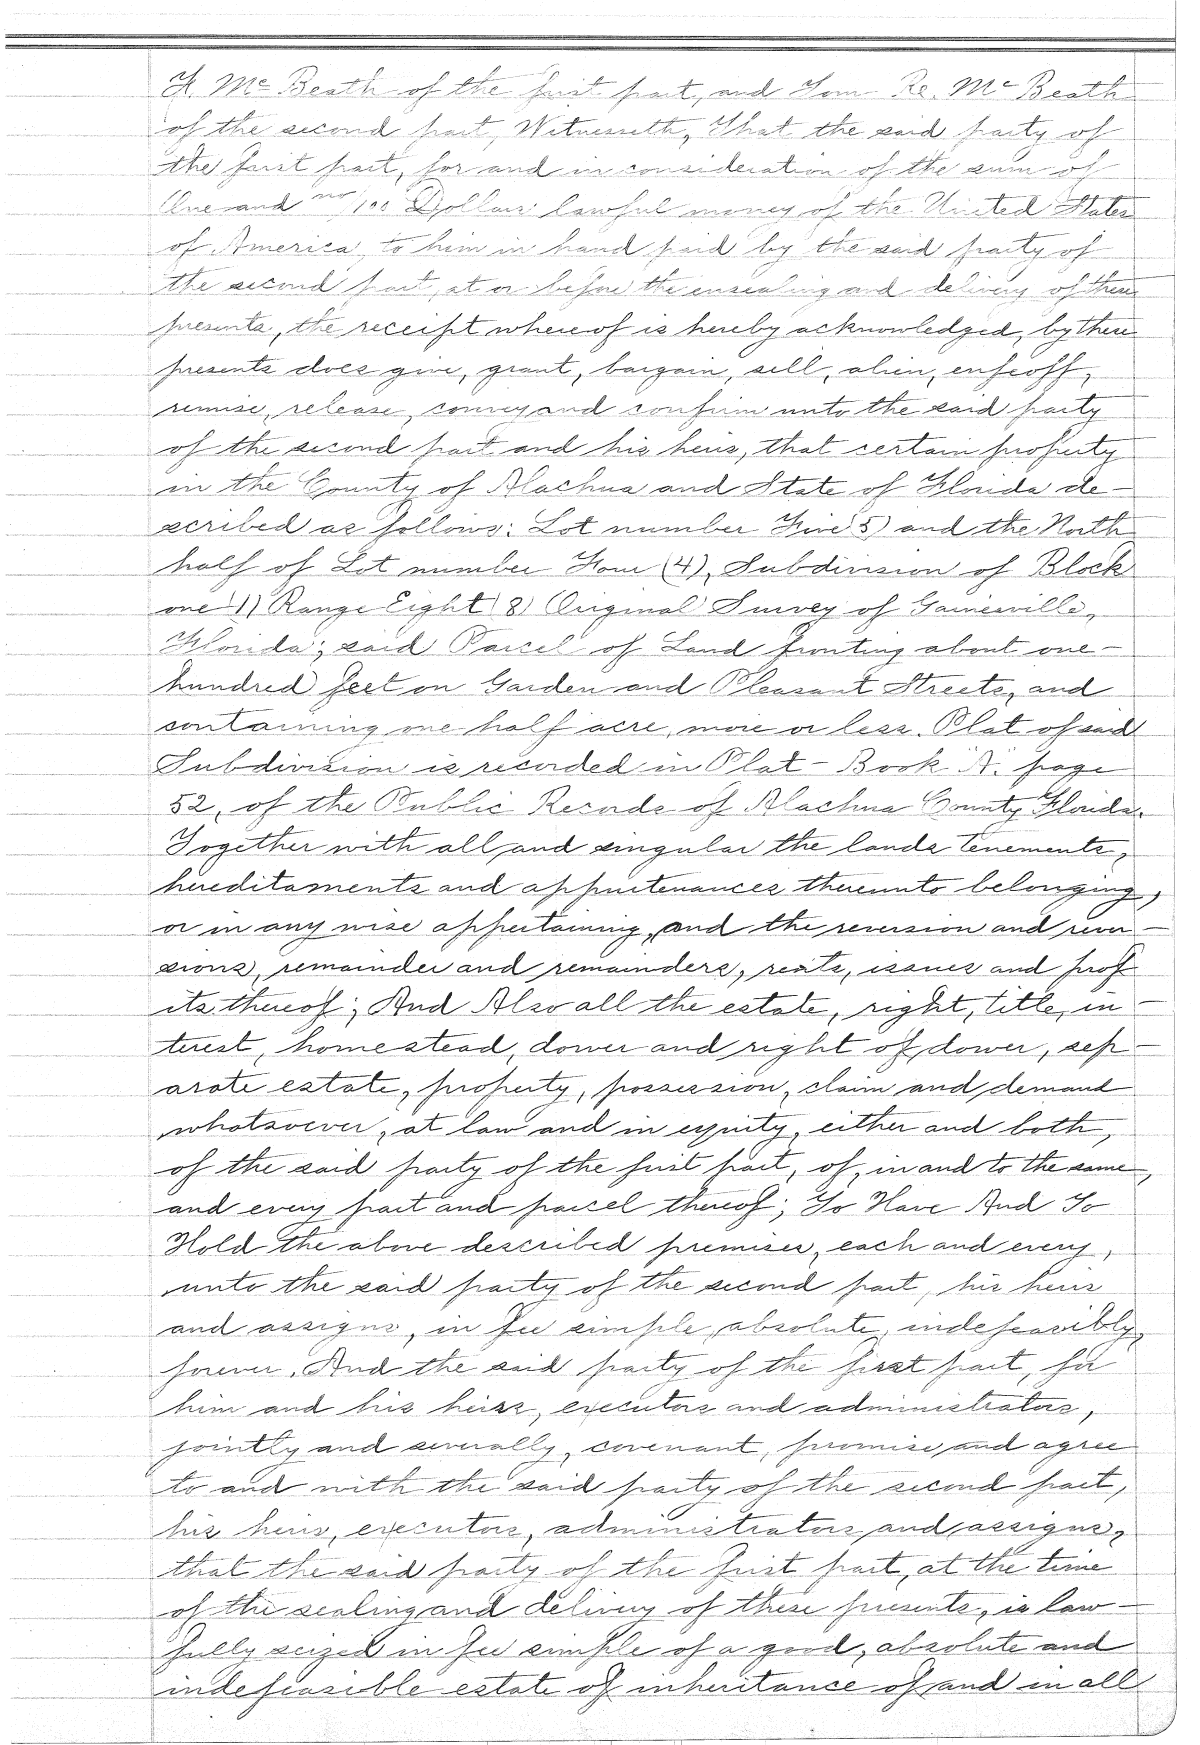 H. Mc Beath of the first part, and Tom Re. Mc Beath
of the second part, Witnesseth, That the said party of
the first part, for and in consideration of the sum of
One and no/100 Dollars lawful money of the United States
of America, to him in hand paid by the said party of
the second part, at or before the ensealing and delivery of these
presents, the receipt whereof is hereby acknowledged, by these
presents does give, grant, bargain, sell, alien, enfeoff,
remise, release, convey and confirm unto the said party
of the second part and his heirs, that certain property
in the County of Alachua and State of Florida de-
scribed as follows: Lot number Five 5) and the North
half of Lot number Four (4), Subdivision of Block
one 1) Range Eight (8) Original Survey of Gainesville,
Florida; said Parcel of Land fronting about one-
hundred feet on Garden and Pleasant Streets, and
containing one half acre, more or less. Plat of said
Subdivision is recorded in Plat- Book "A" page
52, of the Public Records of Alachua County Florida.
Together with all and singular the lands tenements,
hereditaments and appurtenances thereunto belonging,
or in any wise appertaining, and the reversion and rever-
sions, remainder and remainders, rents, issues and prof
its thereof; And Also all the estate, right, title, in-
terest, homestead, dower and right of dower, sep-
arate estate, property, possession, claim and demand
whatsoever, at law and in equity, either and both,
of the said party of the first part, of, in and to the same,
and every part and parcel thereof; To Have And To
Hold the above described premises, each and every,
unto the said party of the second part, his heirs
and assigns, in fee simple, absolute, indefeasibly,
forever. And the said party of the first part, for
him and his heirs, executors and administrators,
jointly and severally, covenant, promise and agree
to and with the said party of the second part,
his heirs, executors, administrators and assigns,
that the said party of the first part, at the time
of the sealing and delivery of these presents, is law-
fully seized in fee simple of a good, absolute and
indefeasible estate of inheritance of and in all